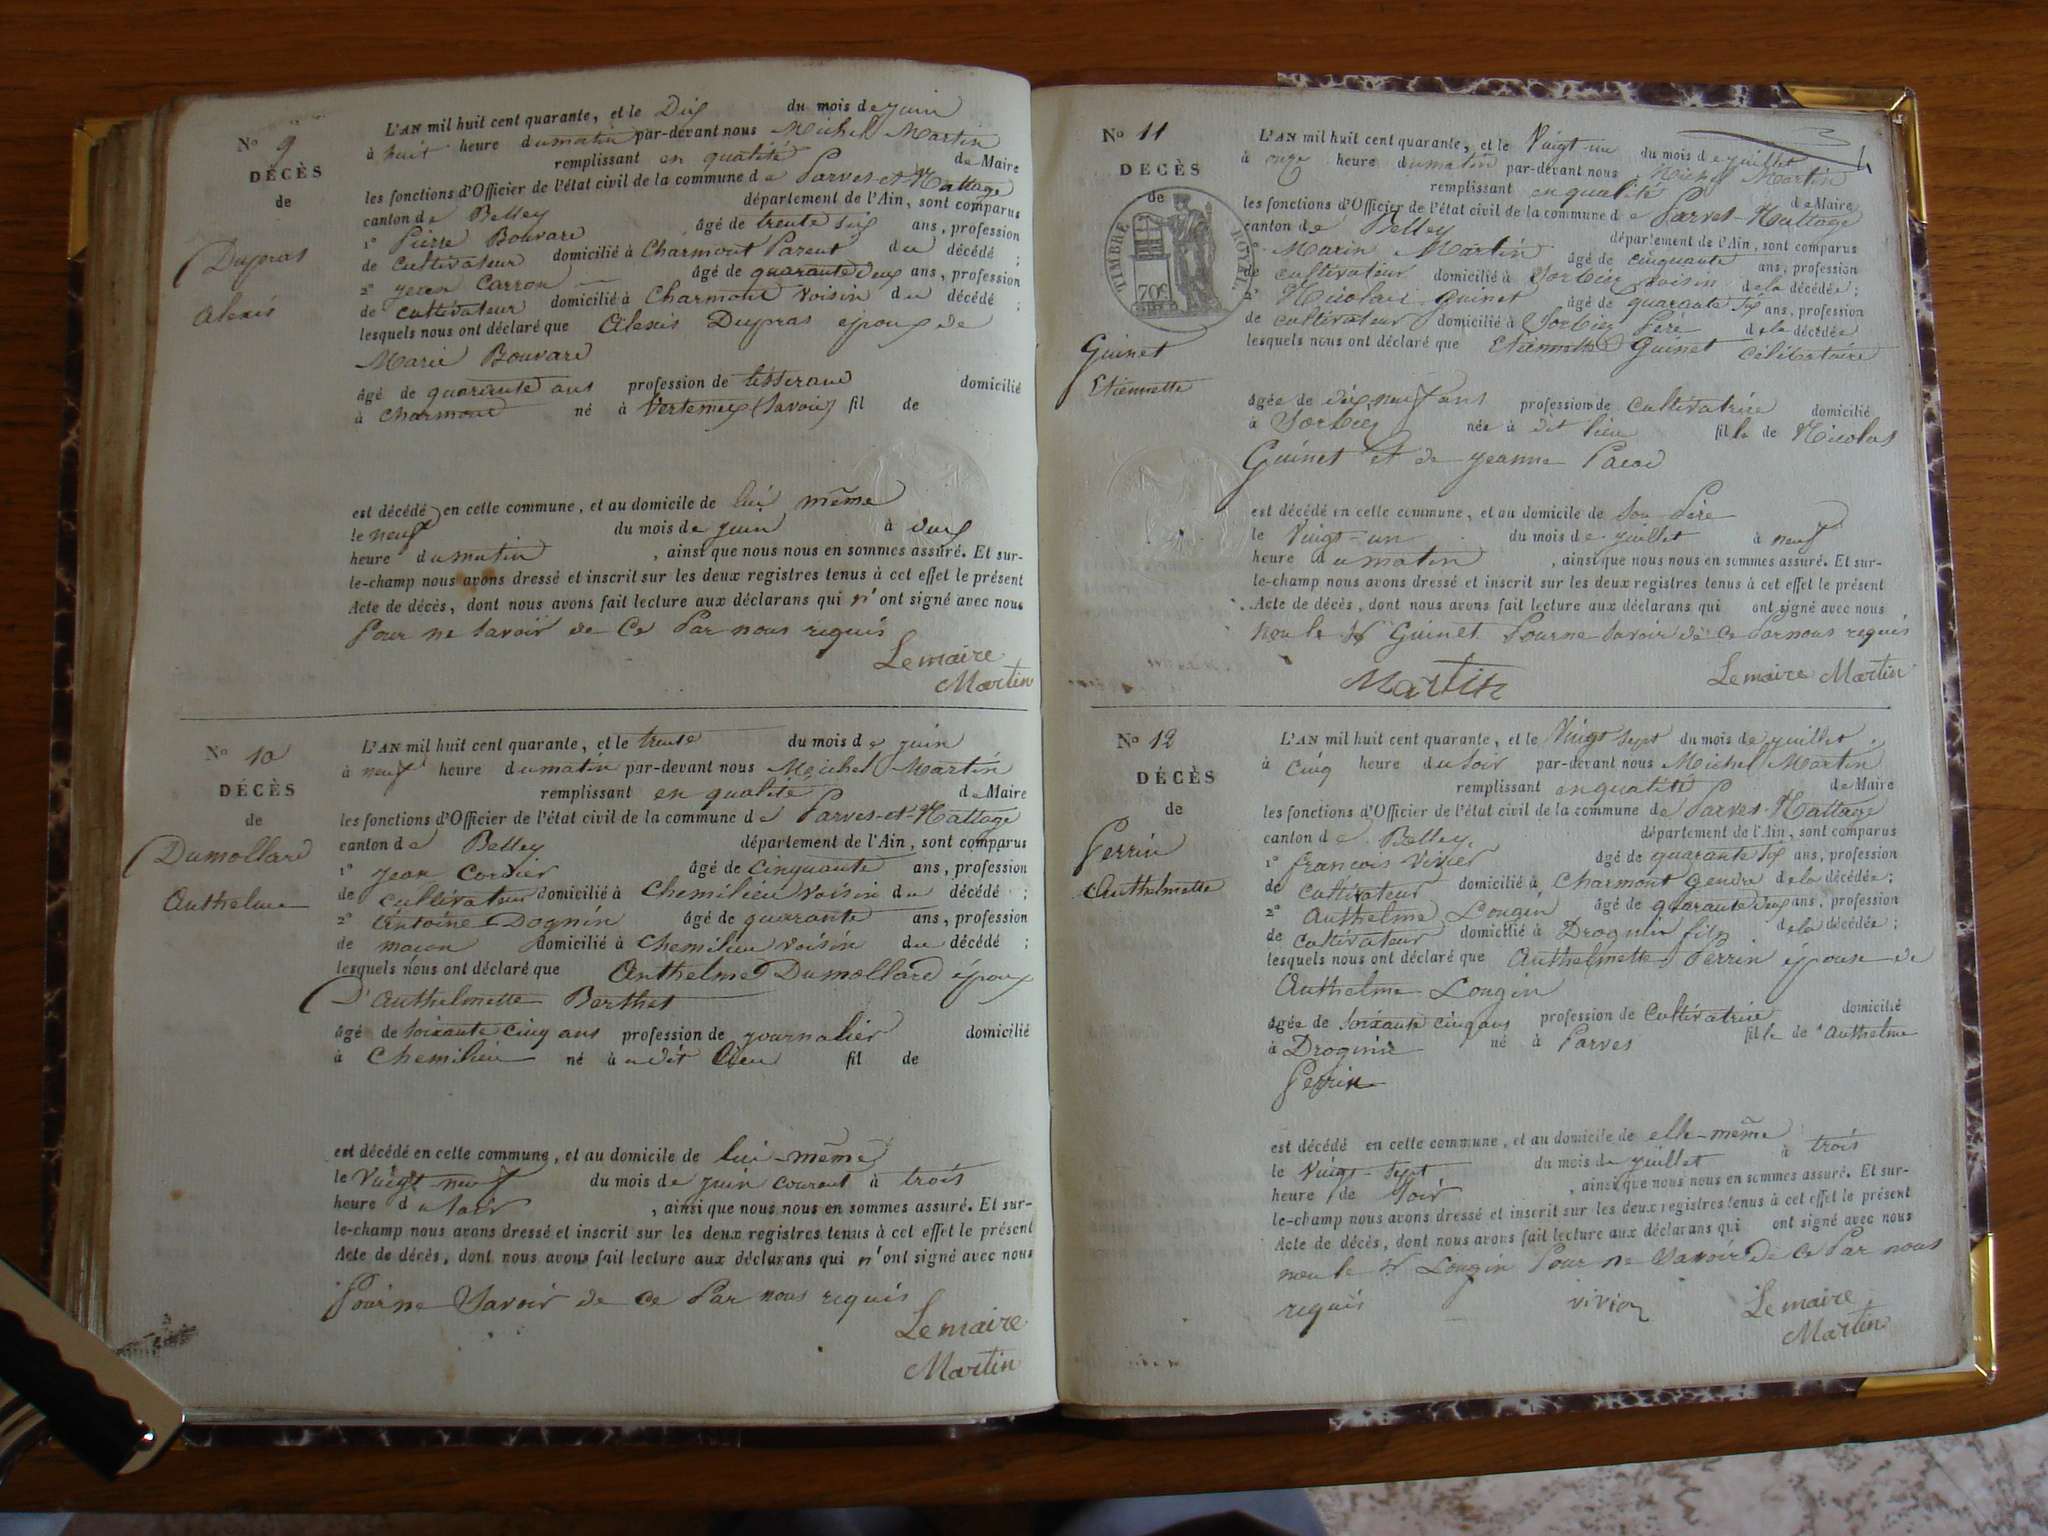 N° 9
DÉCÈS
de
Dupras
Alexis
L'AN mil huit cent quarante, et le Dix du mois de juin
à huit heure du matin par-devant nous Michel Martin
remplissant en qualité de Maire
les fonctions d'Officier de l'état civil de la commune de Parves-et-Nattage
canton de Belley département de l'Ain, sont comparus
1° Pierre Bouvard âgé de trente six ans, profession
de cultivateur domicilié à Charmont Parent du décédé ;
2° jean Carron âgé de quarante deux ans, profession
de cultivateur domicilié à Charmont voisin du décédé ;
lesquels nous ont déclaré que Alexis Dupras epoux de
Marie Bouvard
âgé de quarante ans profession de tisserand domicilié
à Charmont né à (Savoie) fil de
est décédé en cette commune, et au domicile de lui même
le neuf du mois de juin à deux
heure du matin, ainsi que nous nous en sommes assuré. Et sur-
le-champ nous avons dressé et inscrit sur les deux registres tenus à cet effet le présent
Acte de décès, dont nous avons fait lecture aux déclarans qui n'ont signé avec nous
Pour ne Savoir de Ce Par nous requis
Le maire
Martin
N° 10
DÉCÈS
de
Dumollard
Anthelme
L'AN mil huit cent quarante, et le trente du mois de juin
à neuf heure du matin par-devant nous Michel Martin
remplissant en qualité de Maire
les fonctions d'Officier de l'état civil de la commune de Parves-et-Nattage
canton de Belley département de l'Ain, sont comparus
1° jean Cordier âgé de Cinquante ans, profession
de cultivateur domicilié à Chemilieu voisin du décédé ;
2° Antoine Dognin âgé de quarante ans, profession
de maçon domicilié à Chemilieu voisin du décédé ;
lesquels nous ont déclaré que Anthelme Dumollard époux
D'Anthelmette Berthet
âgé de Soixante Cinq ans profession de journalier domicilié
à Chemilieu né à u dit lieu fil de
est décédé en cette commune, et au domicile de lui-même
le Vingt neuf du mois de juin courant à trois
heure du Soir, ainsi que nous nous en sommes assuré. Et sur-
le-champ nous avons dressé et inscrit sur les deux registres tenus à cet effet le présent
Acte de décès, dont nous avons fait lecture aux déclarans qui n'ont signé avec nous
Pour ne Savoir de Ce Par nous requis
Le maire
Martin
N° 11
DÉCÈS
de
TIMBRE ROYAL
70c
Guinet
Etiennette
L'AN mil huit cent quarante, et le Vingt-un du mois de juillet
à onze heure du matin par-devant nous Michel Martin
remplissant en qualité de Maire
les fonctions d'Officier de l'état civil de la commune de Parves-Nattage
canton de Belley département de l'Ain, sont comparus
1° Marin Martin âgé de cinquante ans, profession
de cultivateur domicilié à Sorbier voisin de la décédée ;
2° Nicolas Guinet âgé de quarante six ans, profession
de cultivateur domicilié à Sorbier Père de la décédée
lesquels nous ont déclaré que Etiennette Guinet célibataire
âgée de dix neuf ans profession de Cultivatrice domicilié
à Sorbier née à dit lieu fille de Nicolas
Guinet et de jeanne Pacod
est décédé en cette commune, et au domicile de Son Père
le Vingt-un du mois de juillet à neuf
heure du matin, ainsi que nous nous en sommes assuré. Et sur-
le-champ nous avons dressé et inscrit sur les deux registres tenus à cet effet le présent
Acte de décès, dont nous avons fait lecture aux déclarans qui ont signé avec nous
non le Sr Guinet Pour ne Savoir de Ce Par nous requis
Martin Le maire Martin
N° 12
DÉCÈS
de
Perrin
Anthelmette
L'AN mil huit cent quarante, et le Vingt Sept du mois de juillet
à Cinq heure du Soir par-devant nous Michel Martin
remplissant en qualité de Maire
les fonctions d'Officier de l'état civil de la commune de Parves-Nattage
canton de Belley département de l'Ain, sont comparus
1° françois Vivier âgé de quarante Six ans, profession
de cultivateur domicilié à Charmont Gendre de la décédée ;
2° Anthelme Longin âgé de quarante deux ans, profession
de cultivateur domicilié à Drognin fils de la décédée ;
lesquels nous ont déclaré que Anthelmette Perrin épouse de
Anthelme Longin
âgée de Soixante Cinq ans profession de Cultivatrice domicilié
à Drognin né à Parves fille de Anthelme
Perrin
est décédé en cette commune, et au domicile de elle-même
le Vingt-Sept du mois de juillet à trois
heure de Soir, ainsi que nous nous en sommes assuré. Et sur-
le-champ nous avons dressé et inscrit sur les deux registres tenus à cet effet le présent
Acte de décès, dont nous avons fait lecture aux déclarans qui ont signé avec nous
non le Sr Longin Pour ne Savoir de Ce Par nous
requis Le maire
Martin